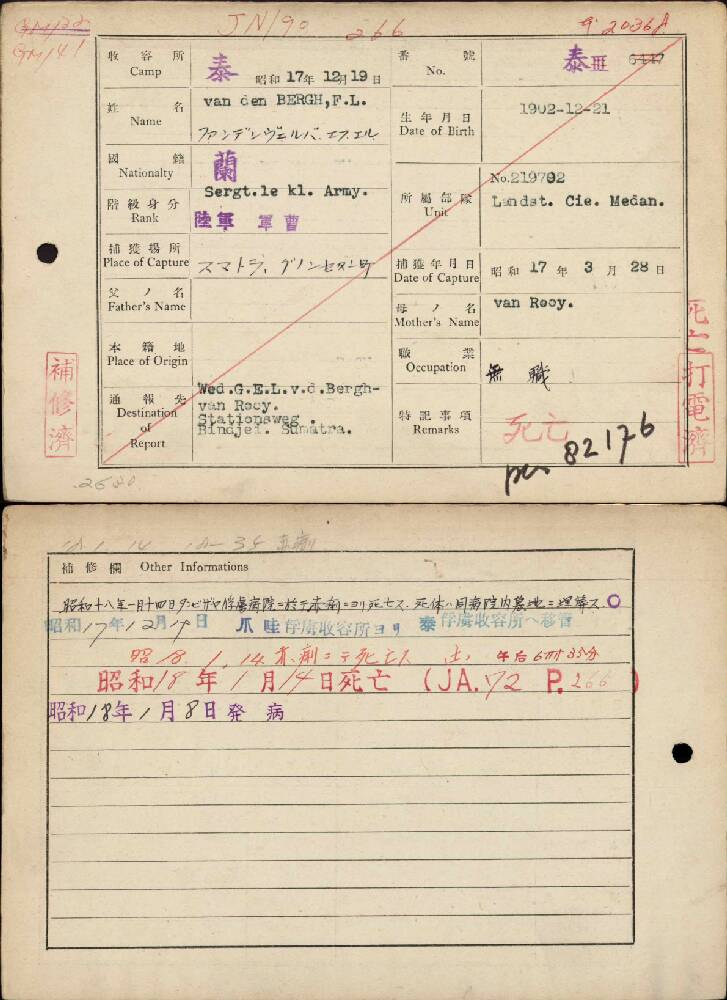 GM/32
GM/41
JN/90
266
2036A
收容所 Camp 泰 昭和17年12月19日
番號 No. 泰 Ⅲ 6447
姓名 Name van den BERGH,F.L.
ファンデンヴェルバ.エフ.エル
生年月日 Date of Birth 1902-12-21
國籍 Nationalty 蘭
階級身分 Rank Sergt.1e kl. Army.
陸軍 軍曹
所屬部隊 Unit No.219792
Landst. Cie. Medan.
捕獲場所 Place of Capture スマトラ、
捕獲年月日 Date of Capture 昭和 17 年 3 月 28 日
父ノ名 Father's Name
母ノ名 Mother's Name van Rooy.
本籍地 Place of Origin
職業 Occupation 無職
通報先 Destination of Report Wed.G.E.L.v.d.Bergh-
van Rooy.
Stationsweg .
Bindjei. Sumatra.
特記事項 Remarks 死亡
82176
補修濟
死亡打電濟
補修欄 Other Informations
昭和十八年一月十四日 俘虜病院ニ於テ赤痢ニヨリ死亡ス. 死体ハ同病院内墓地ニ埋葬ス
昭和17年12月19日 爪哇俘虜收容所ヨリ 泰俘虜收容所へ移管
昭 18. 1. 14. 赤痢ニテ死亡ス 午后6時35分
昭和18年1月14日死亡 (JA.72 P.266)
昭和18年1月8日発病